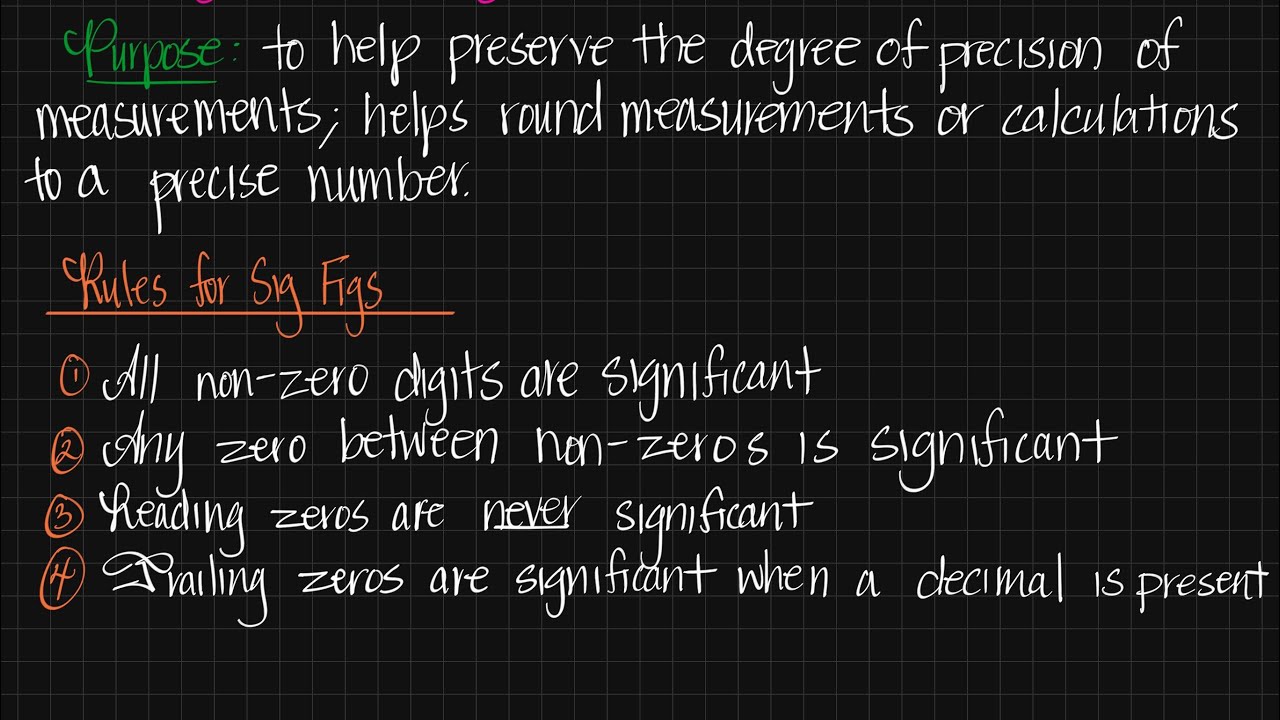 Purpose: to help preserve the degree of precision of
measurements; helps round measurements or calculations
to a precise number.
Rules for Sig Figs
① All non-zero digits are significant
② Any zero between non-zeros is significant
③ Leading zeros are never significant
④ Trailing zeros are significant when a decimal is present